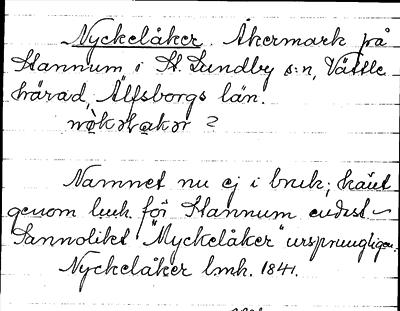 Nyckelåker. Åkermark på
Stannum i St. Lundby s:n, Vättle
härad, Älfsborgs län.
Namnet nu ej i bruk; känt
genom lmh. för Stannum endast
Sannolikt "Myckelåker" ursprungligen.
Nyckelåker lmh. 1841.